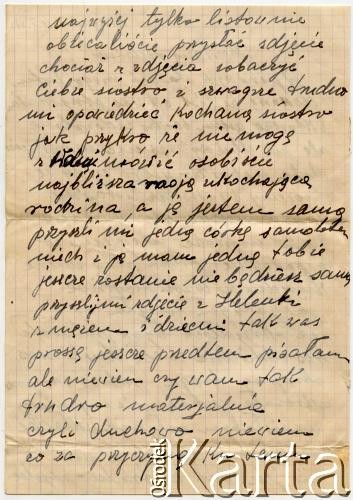 najwyżej tylko listownie
obiecaliście przysłać zdjęcie
chociaż z zdjęcia zobaczyć
Ciebie siostro i szwagra trudno
mi opowiedzieć Kochana siostro
jak przykro że nie mogę
z mówić osobiście
najbliższa moja ukochająca
rodzina, a ja jestem sama
przyszli mi jedną córkę samolotem
niech i ja mam jedną tobie
jeszcze zostanie nie będziesz sama
przyszlij mi zdjęcie z Helenki
z mężem i dziećmi tak was
proszę jeszcze przedtem pisałam
ale niewiem czy wam tak
trudno materjalnie
czyli duchowo niewiem
co za przyczyna Ku temu
Ośrodek Karta